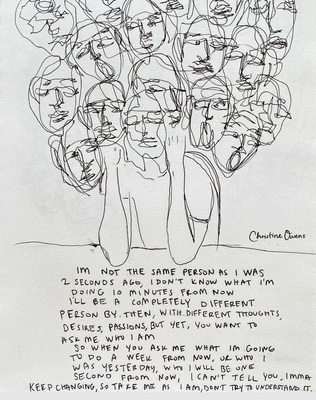 Christine Owens
IM NOT THE SAME PERSON AS I WAS
2 SECONDS AGO, I DON'T KNOW WHAT I'M
DOING 10 MINUTES FROM NOW
I'LL BE A COMPLETELY DIFFERENT
PERSON BY THEN, WITH DIFFERENT THOUGHTS,
DESIRES, PASSIONS, BUT YET, YOU WANT TO
ASK ME WHO I AM
SO WHEN YOU ASK ME WHAT IM GOING
TO DO A WEEK FROM NOW, OR WHO I
WAS YESTERDAY, WHO I WILL BE ONE
SECOND FROM NOW, I CAN'T TELL YOU, IMMA
KEEP CHANGING, SO TAKE ME AS I AM, DON'T TRY TO UNDERSTAND IT.